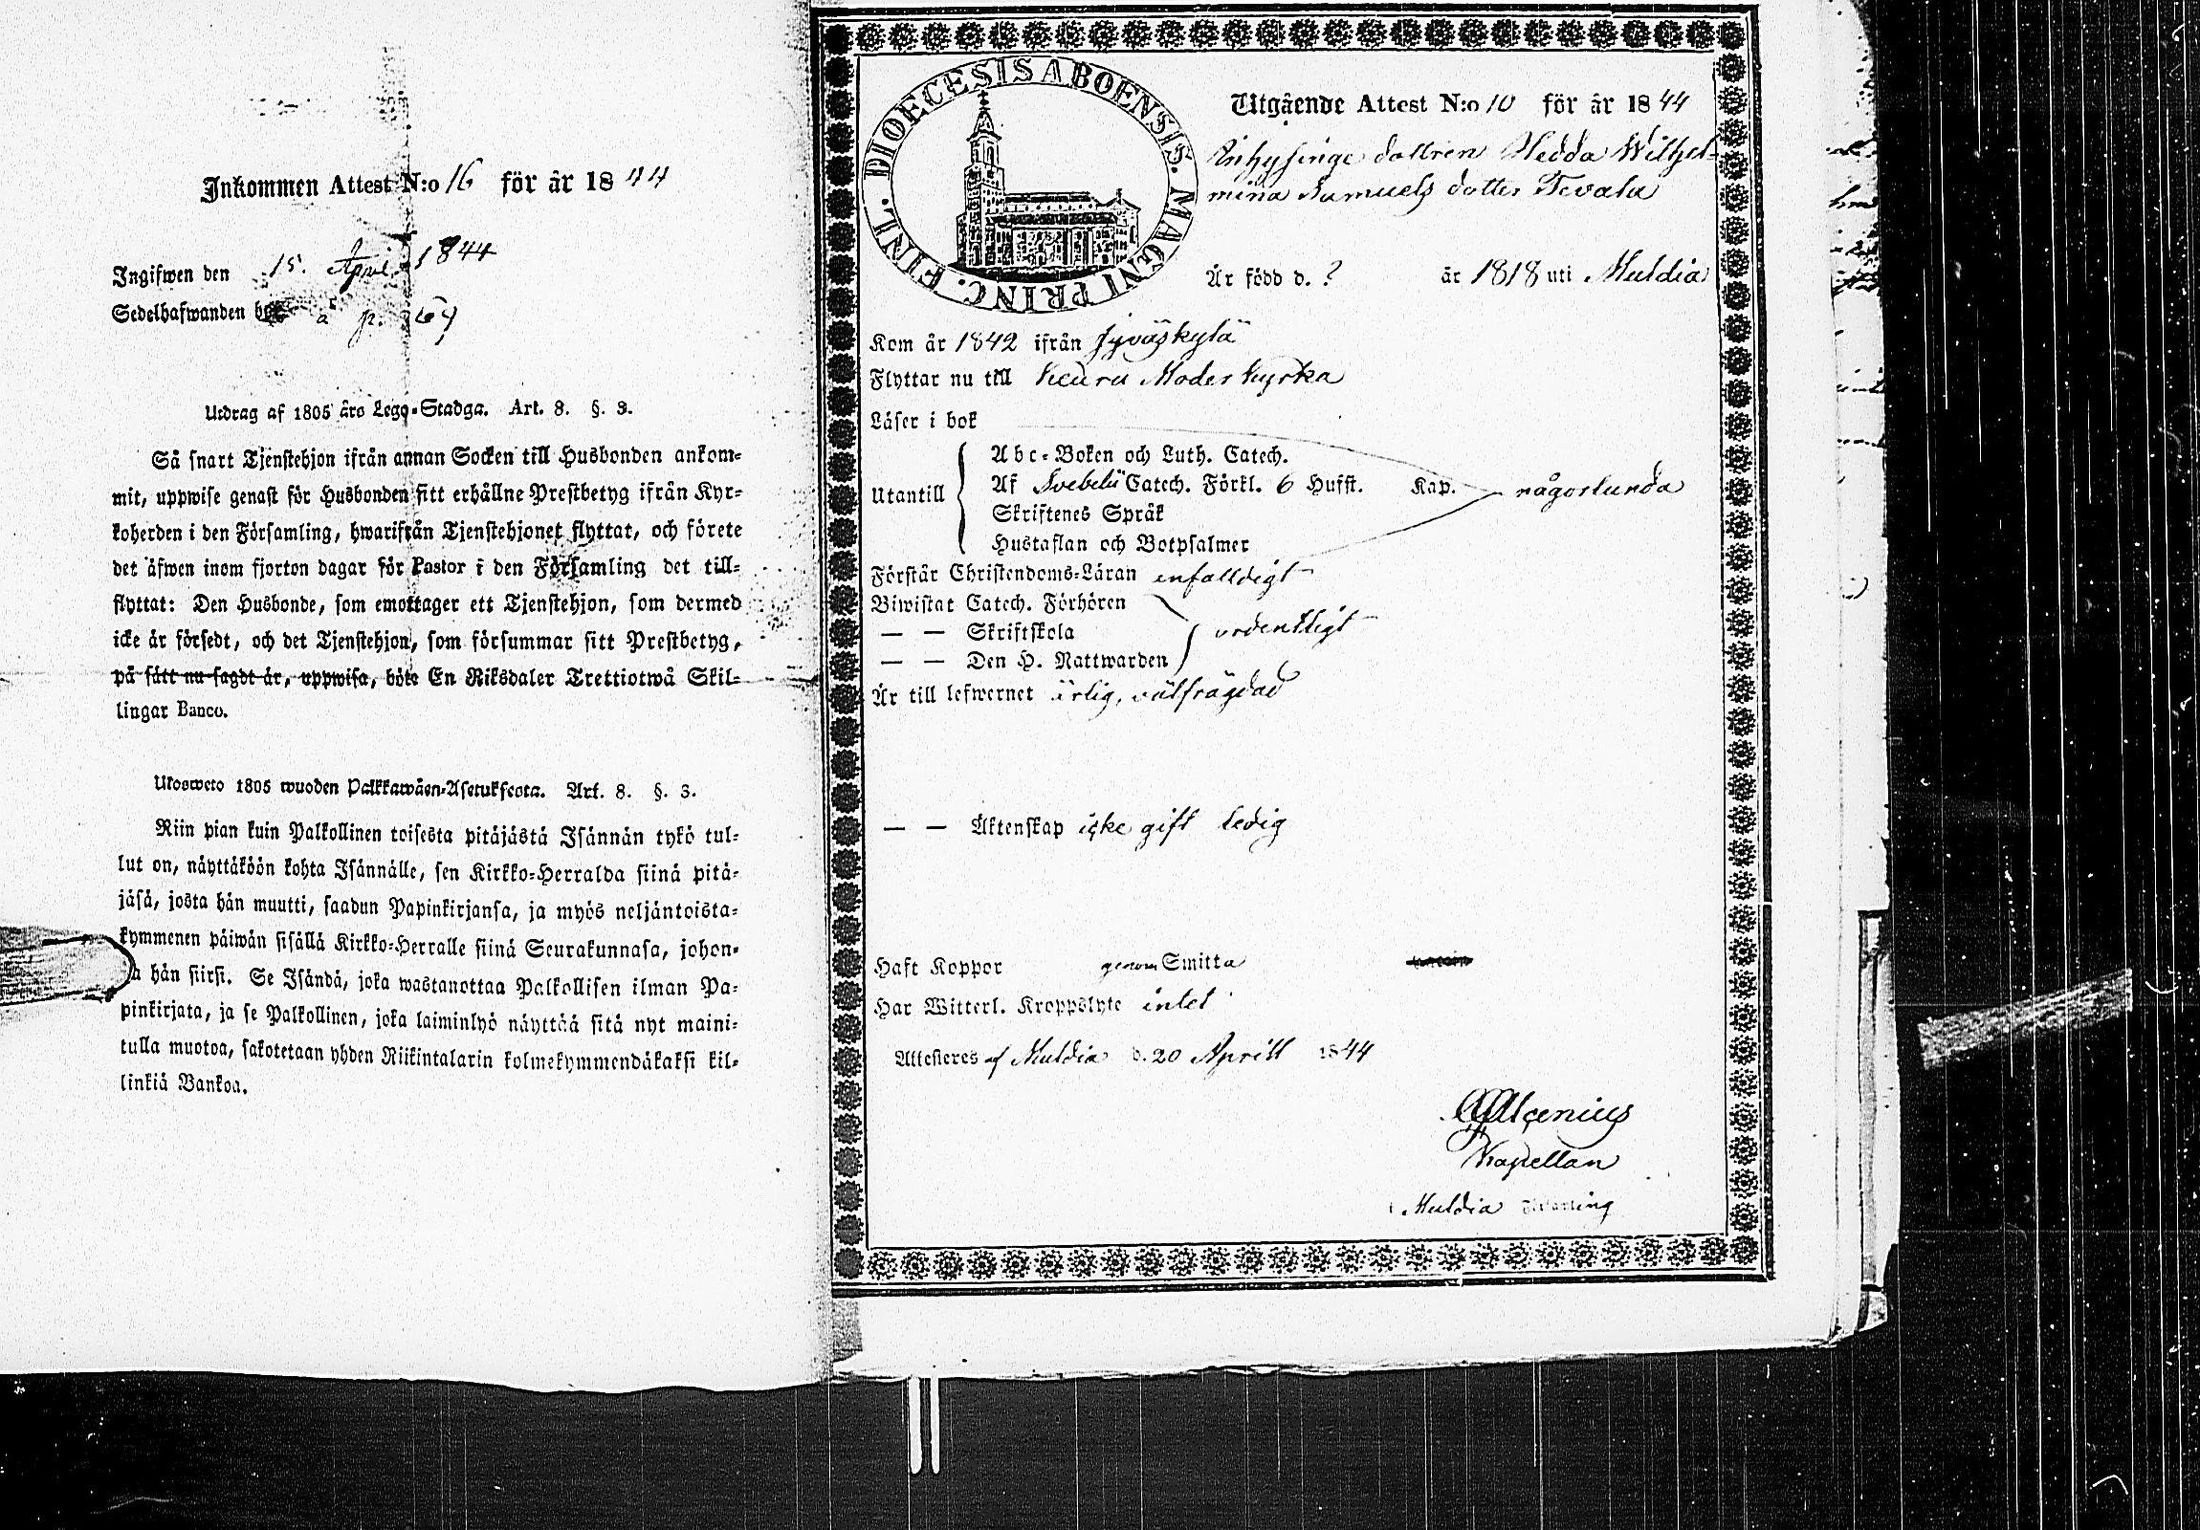 Inkommen Attest N:o 16 för år 1844
Ingifwen den 15. April 1844
Sedelhafwanden p. 
Utdrag af 1805 års Lego-Stadga. Art. 8. §. 3.
Så snart Tjenstehjon ifrån annan Socken till Husbonden ankom-
mit, uppwise genast för Husbonden sitt erhållne Prestbetyg ifrån Kyr-
koherden i den Församling, hwarifrån Tjenstehjonet flyttat, och förete
det äfwen inom fjorton dagar för Pastor i den Församling det till-
flyttat: Den Husbonde, som emottager ett Tjenstehjon, som dermed
icke är försedt, och det Tjenstehjon, som försummar sitt Prestbetyg,
på sätt nu sagdt är, uppwisa, böte En Riksdaler Trettiotwå Skil-
lingar Banco.
Ulosweto 1805 wuoden Palkkawäen-Asetuksesta. Art. 8. §. 3.
Niin pian kuin Palkollinen toisesta pitäjästä Isännän tykö tul-
lut on, näyttäköön kohta Isännälle, sen Kirkko-Herralda siinä pitä-
jäsä, josta hän muutti, saadun Papinkirjansa, ja myös neljäntoista-
kymmenen päiwän sisällä Kirkko-Herralle siinä Seurakunnasa, johon-
a hän siirsi. Se Isändä, joka wastanottaa Palkollisen ilman Pa-
pinkirjata, ja se Palkollinen, joka laiminlyö näyttää sitä nyt maini-
tulla muotoa, sakotetaan yhden Riikintalarin kolmekymmendäkaksi kil-
linkiä Bankoa.
DIOECESIS ABOENSIS. MAGNI PRINC. FINL.
Utgående Attest N:o 10 för år 1844
Inhysinge dottren Hedda Wilhel-
mina Samuels dotter Tevala
Är född d. ? år 1818 uti Muldia
Kom år 1842 ifrån Jyväskylä
Flyttar nu till Keuru Moderkyrka
Läser i bok
Abc-Boken och Luth. Catech.
Utantill Af Svebelii Catech. Förkl. 6 Hufst. Kap. någorlunda
Skriftenes Språk
Hustaflan och Botpsalmer
Förstår Christendoms-Läran enfalldigt
Biwistat Catech. Förhören
— — Skriftskola ordentligt
— — Den H. Nattwarden
Är till lefwernet ärlig, välfrägdad
— — Äktenskap icke gift ledig
Haft Koppor genom Smitta
Har Witterl. Kroppslyte intet
Attesteres af Muldia d. 20 Aprill 1844
Alcenius
Kapellan
i Muldia Församling